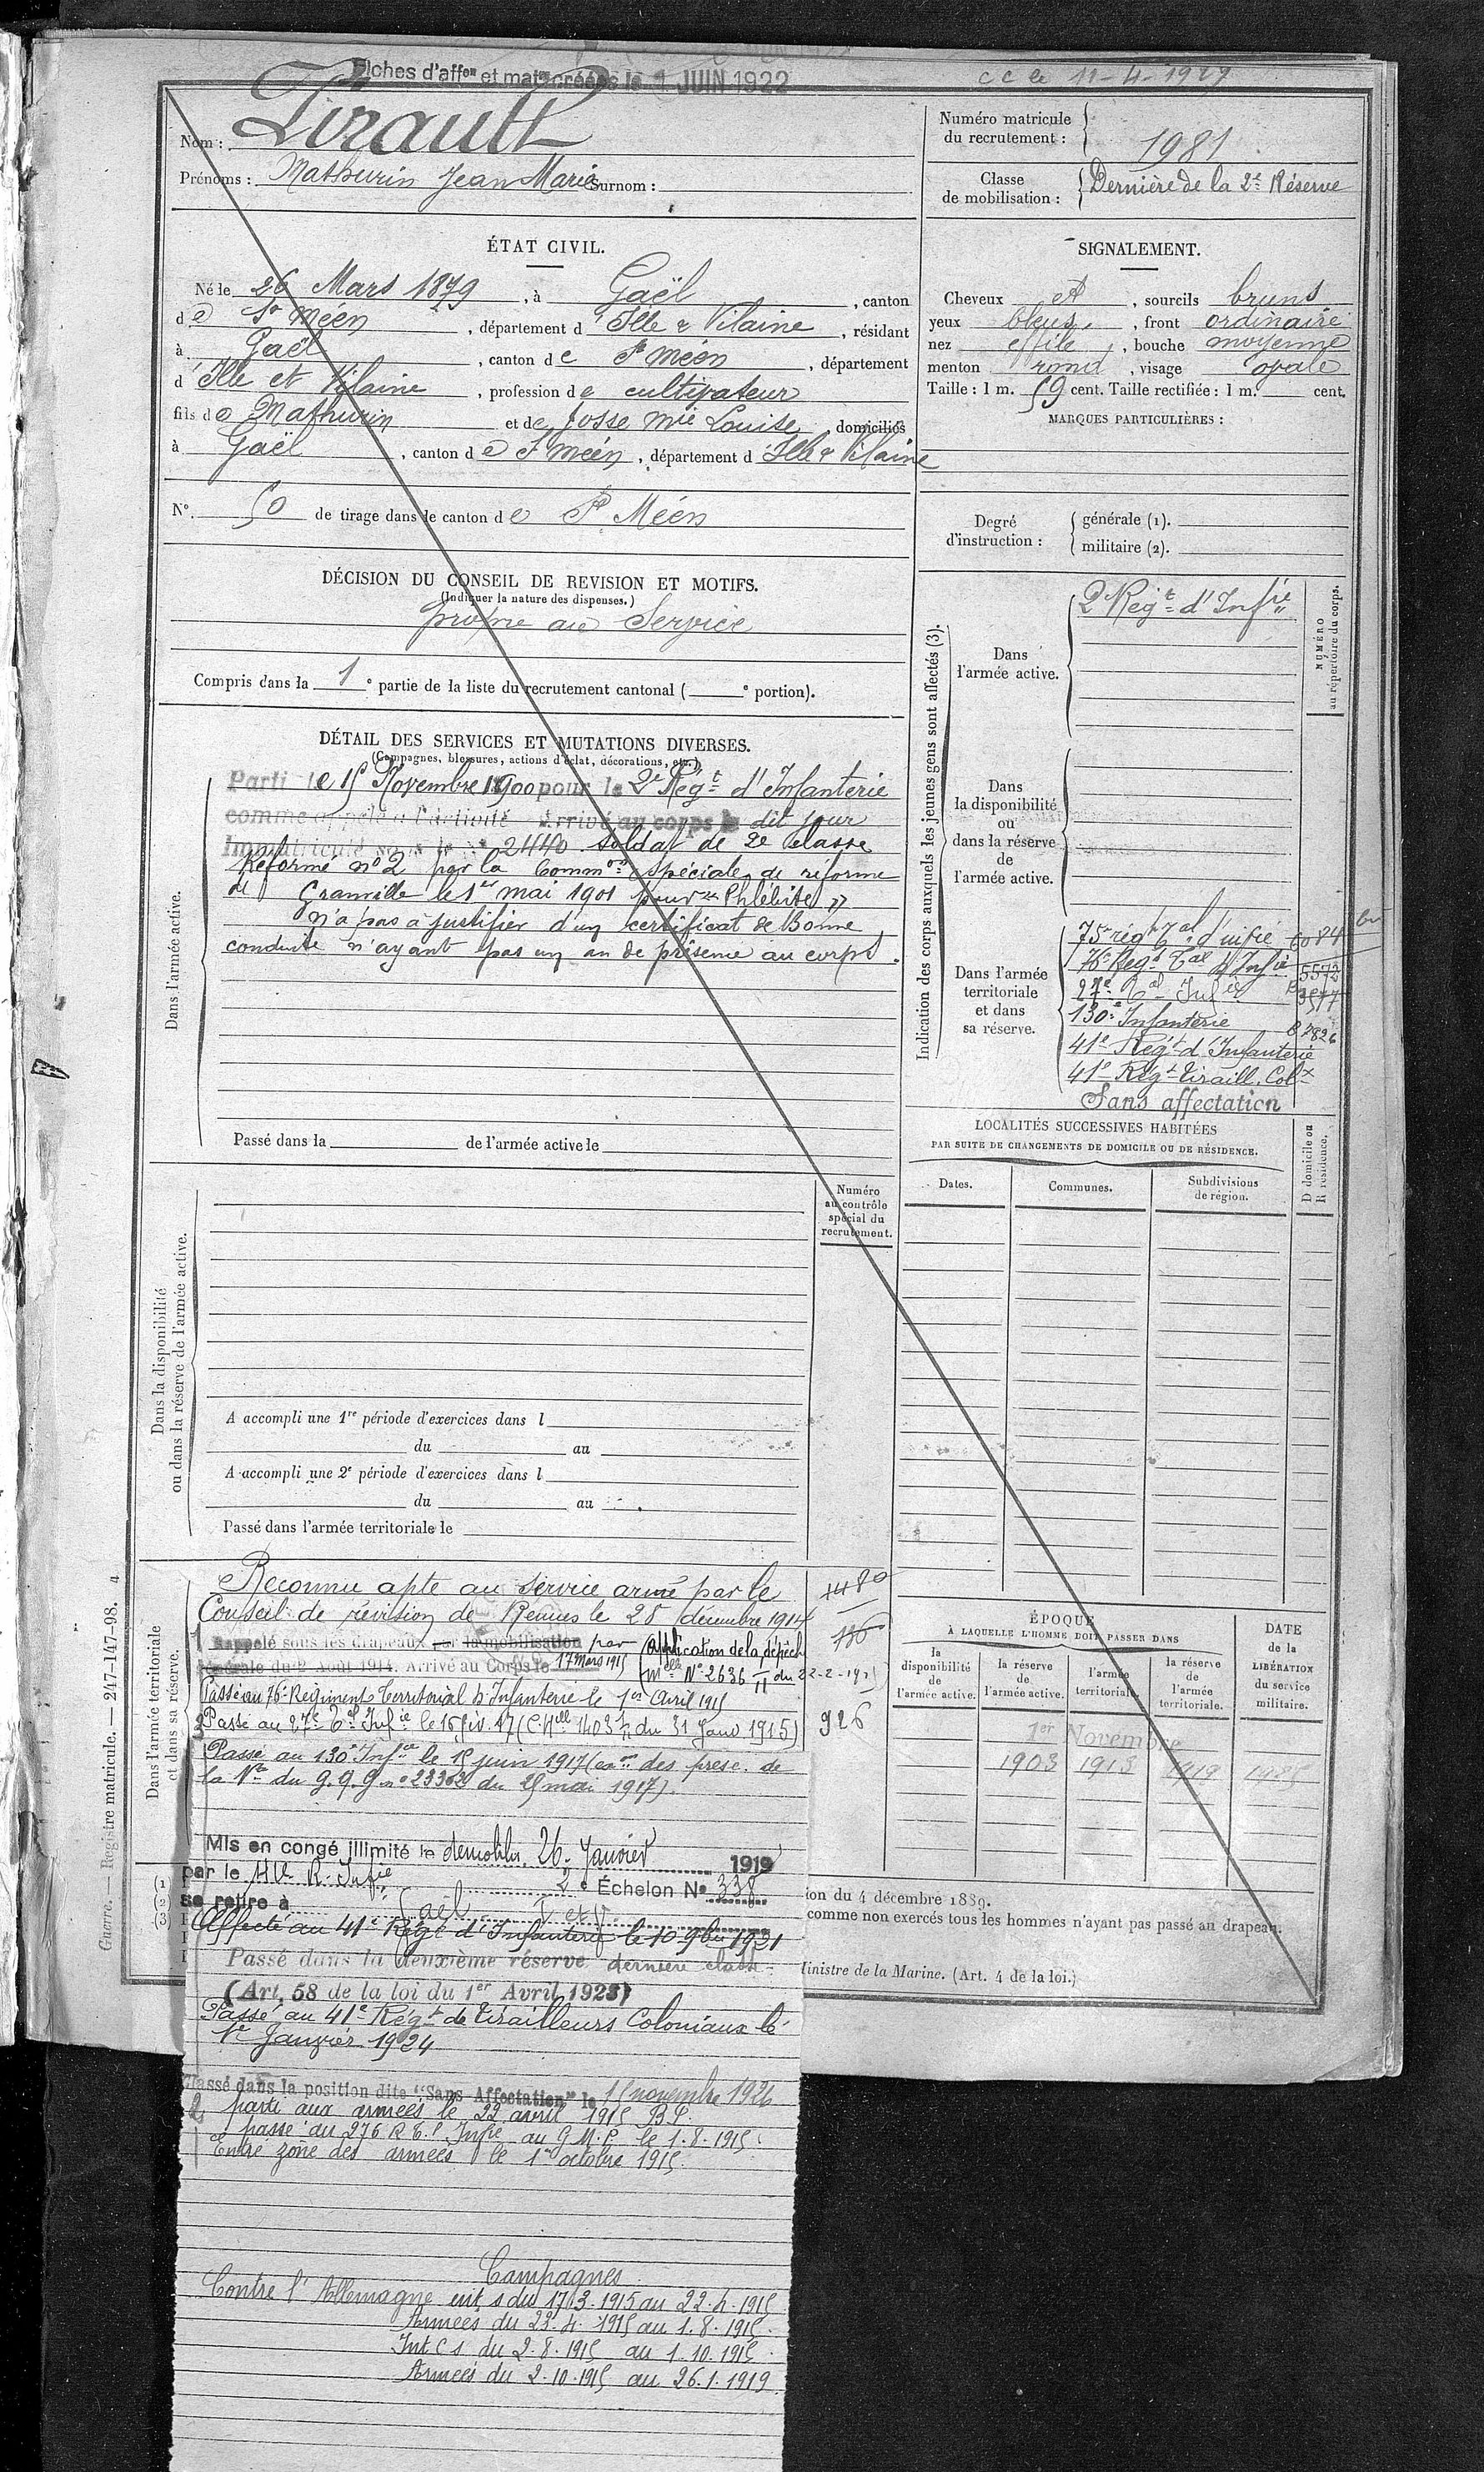 Fiches d'aff^on et mat^re créées le 1 JUIN 1922
c c le 11-4-1929
Nom : Tirault
Prénoms : Mathurin Jean Marie Surnom :
Numéro matricule du recrutement : 1981
Classe de mobilisation : Dernière de la 2e Réserve
ÉTAT CIVIL.
Né le 26 Mars 1879, à Gaël, canton
de St Méen, département d'Ille & Vilaine, résidant
à Gaël, canton de St Méen, département
d'Ille et Vilaine, profession de cultivateur
fils de Mathurin et de Josse Mie Louise, domiciliés
à Gaël, canton de St Méen, département d'Ille & Vilaine
N° 50 de tirage dans le canton de St Méen
SIGNALEMENT.
Cheveux et, sourcils bruns
yeux bleus, front ordinaire
nez effilé, bouche moyenne
menton rond, visage ovale
Taille : 1 m. 59 cent. Taille rectifiée : 1 m. cent.
MARQUES PARTICULIÈRES :
Degré d'instruction : générale (1).
militaire (2).
DÉCISION DU CONSEIL DE REVISION ET MOTIFS.
(Indiquer la nature des dispenses.)
propre au Service
Compris dans la 1e partie de la liste du recrutement cantonal ( e portion).
DÉTAIL DES SERVICES ET MUTATIONS DIVERSES.
(Campagnes, blessures, actions d'éclat, décorations, etc.)
Dans l'armée active.
Parti le 15 Novembre 1900 pour le 2e Régt d'Infanterie
comme appelé à l'activité Arrivé au corps le dit jour
Immatriculé sous le n° 2440 soldat de 2e classe
Réformé n° 2 par la Common spéciale de réforme
de Granville le 1er mai 1901 pour "Phlébite"
n'a pas à justifier d'un certificat de Bonne
conduite n'ayant pas un an de présence au corps.
Passé dans la de l'armée active le
Indication des corps auxquels les jeunes gens sont affectés (3).
NUMÉRO au répertoire du corps.
Dans l'armée active.
2e Régt d'Infie
Dans la disponibilité ou dans la réserve de l'armée active.
Dans l'armée territoriale et dans sa réserve.
75e régt tal d'infie 6084
76e Régt Tal d'Infie 5572
27e Tal Infie 3577
130e Infanterie 87826
41e Régt d'Infanterie
41e Régt Tiraill. Colx
Sans affectation
LOCALITÉS SUCCESSIVES HABITÉES
PAR SUITE DE CHANGEMENTS DE DOMICILE OU DE RÉSIDENCE.
Dates. Communes. Subdivisions de région. D domicile ou R résidence.
Dans la disponibilité ou dans la réserve de l'armée active.
Numéro au contrôle spécial du recrutement.
A accompli une 1re période d'exercices dans l
du au
A accompli une 2e période d'exercices dans l
du au
Passé dans l'armée territoriale le
Dans l'armée territoriale et dans sa réserve.
Reconnu apte au service armé par le
Conseil de révision de Rennes le 28 décembre 1914
Rappelé sous les drapeaux par la mobilisation par (Application de la dépêche
générale du 2 Août 1914. Arrivé au Corps le 17 Mars 1915 Mlle N° 2636 II du 22-2-15)
Passé au 76e Régiment Territorial d'Infanterie le 1er Avril 1915
Passé au 27e Tal Infie le 16 fév. 17 (C.Mlle 1403 du 31 Janv 1915) 926
Passé au 130e Infie le 15 juin 1917 (eon des presc. de
la Nte du G.Q.G n° 23302 du 25 mai 1917).
Mis en congé illimité de démobilon 26 Janvier 1919
par le 41e R. Infie 2e Échelon N° 338
se retire à Gaël I et V
Affecté au 41e Régt d'Infanterie le 10 9bre 1921
Passé dans la deuxième réserve dernière classe
(Art. 58 de la loi du 1er Avril 1923)
Passé au 41e Régt de Tirailleurs Coloniaux le
1er Janvier 1924
Passé dans la position dite "Sans Affectation" le 15 novembre 1926
parti aux armées le 22 avril 1915 B.P.
passé au 276 R t.l Infie au G.M.P. le 1.8.1915
Entre zone des armées le 1er octobre 1915.
Campagnes
Contre l'Allemagne int. s du 17.3.1915 au 22.4.1915
Armées du 23.4.1915 au 1.8.1915.
Int C s du 2.8.1915 au 1.10.1915.
Armées du 2.10.1915 au 26.1.1919.
ÉPOQUE
À LAQUELLE L'HOMME DOIT PASSER DANS
la disponibilité de l'armée active. la réserve de l'armée active. l'armée territoriale. la réserve de l'armée territoriale. DATE de la LIBÉRATION du service militaire.
1er Novembre
1903 1913 1919 1925
ion du 4 décembre 1889.
comme non exercés tous les hommes n'ayant pas passé au drapeau.
inistre de la Marine. (Art. 4 de la loi.)
Guerre. — Registre matricule. — 247-147-98. 4